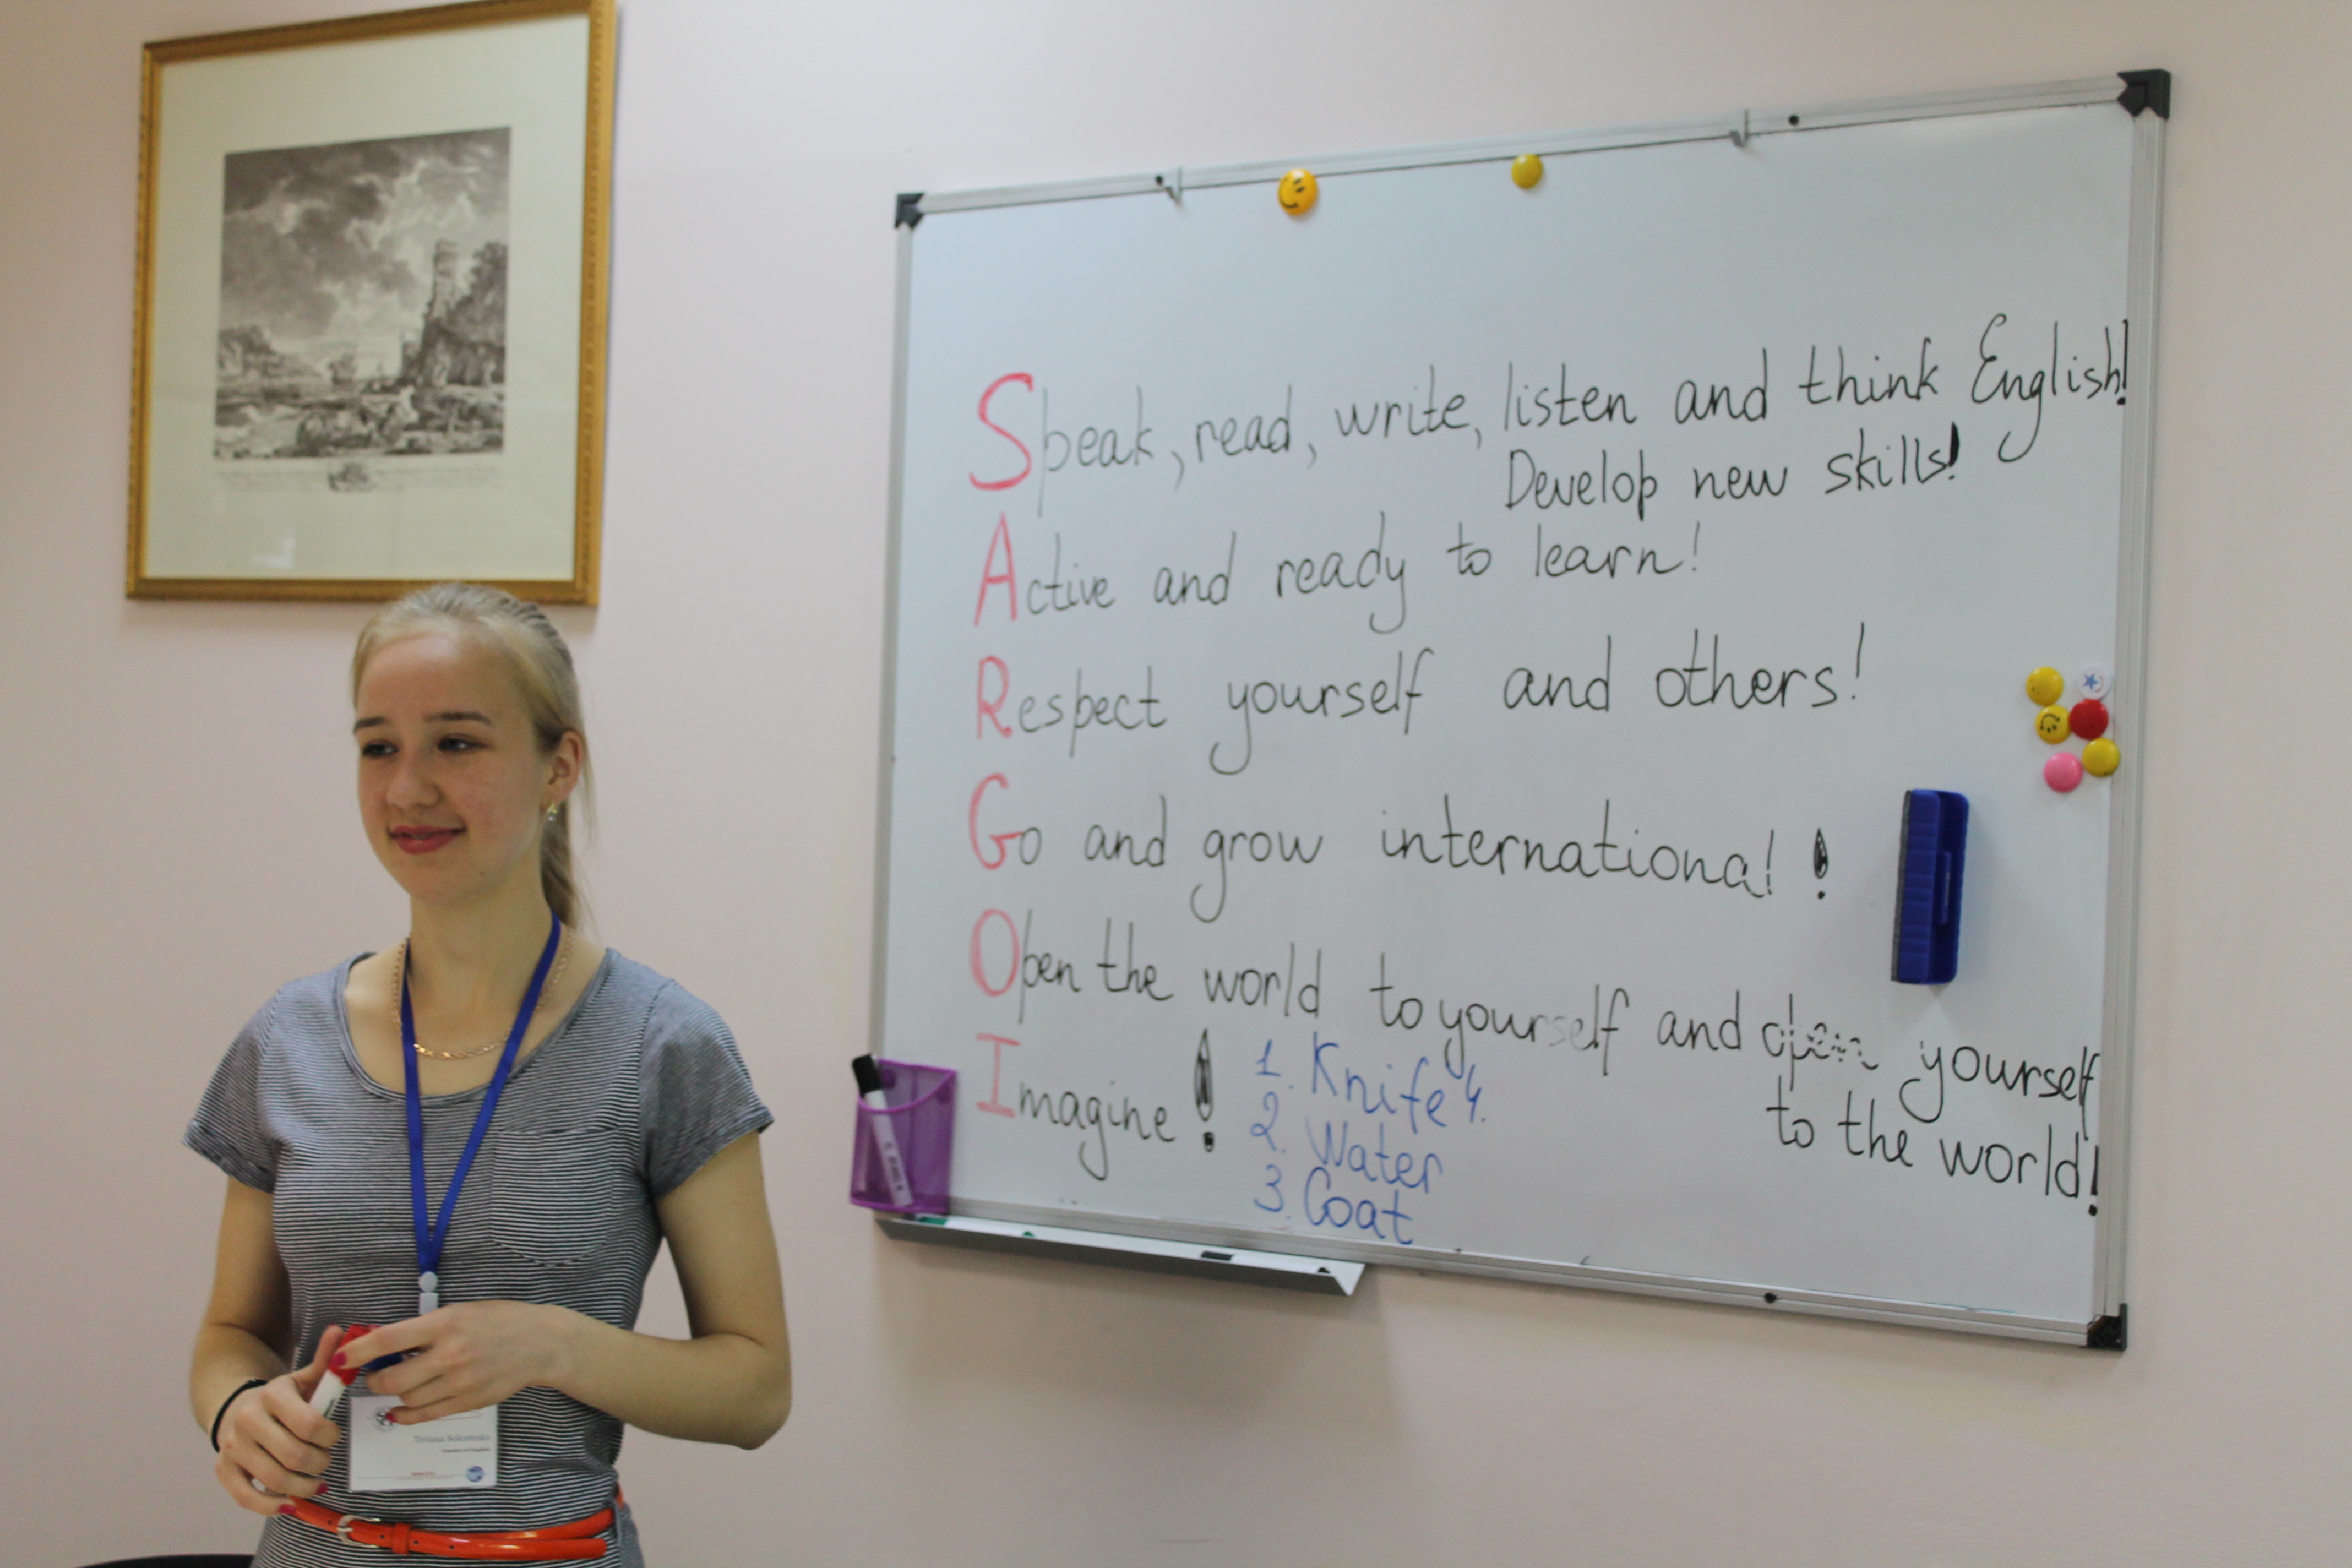 Speak, read, write, listen and think English!
Develop new skills!
Active and ready to learn!
Respect yourself and others!
Go and grow international!
Open the world to yourself and open yourself
to the world!
Imagine!
1. Knife 4.
2. Water
3. Coat
Teacher of English